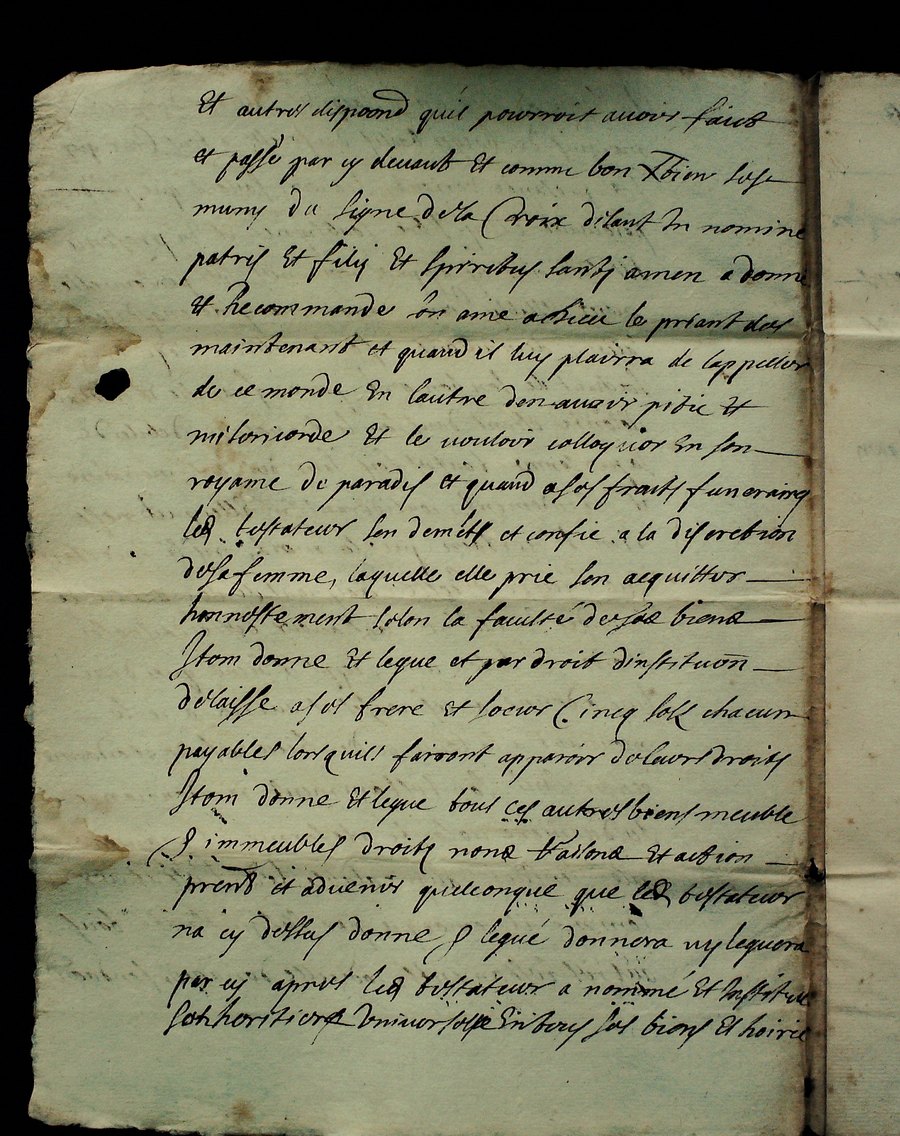 Et autres dispoond quil pourroit avoir faict
et passé par cy devant Et comme bon Xbien sest
muny du signe dela Croix disant In nomine
patris Et filij Et spiritus santj amen a donné
Et Recommandé son ame a Dieu le priant des
maintenant et quand il luy plairra de lappeller
de ce monde En lautre den avoir pitié Et
misericorde Et le vouloir colloquer En son
royame de paradis et quand a ses fraits funeraires
led. testateur sen demêts et confie a la discretion
desa femme, laquelle elle prie son acquitter
honnestement selon la faculté deses biens
Item donne Et legue et par droit dinstituõn
delaisse a ses frere Et soeur Cinq solz chacun
payables lorsquils fairont apparoir deleurs droits
Item donne Et legue tous ces autres biens meuble
& immeubles droits noms raisons Et action
prents et advenir quelconque que led testateur
na cy dessus donne & legué donnera ny leguera
par cy apres led testateur a nommé Et Institue
son heritiere Universelle En tous ses biens Et hoirie